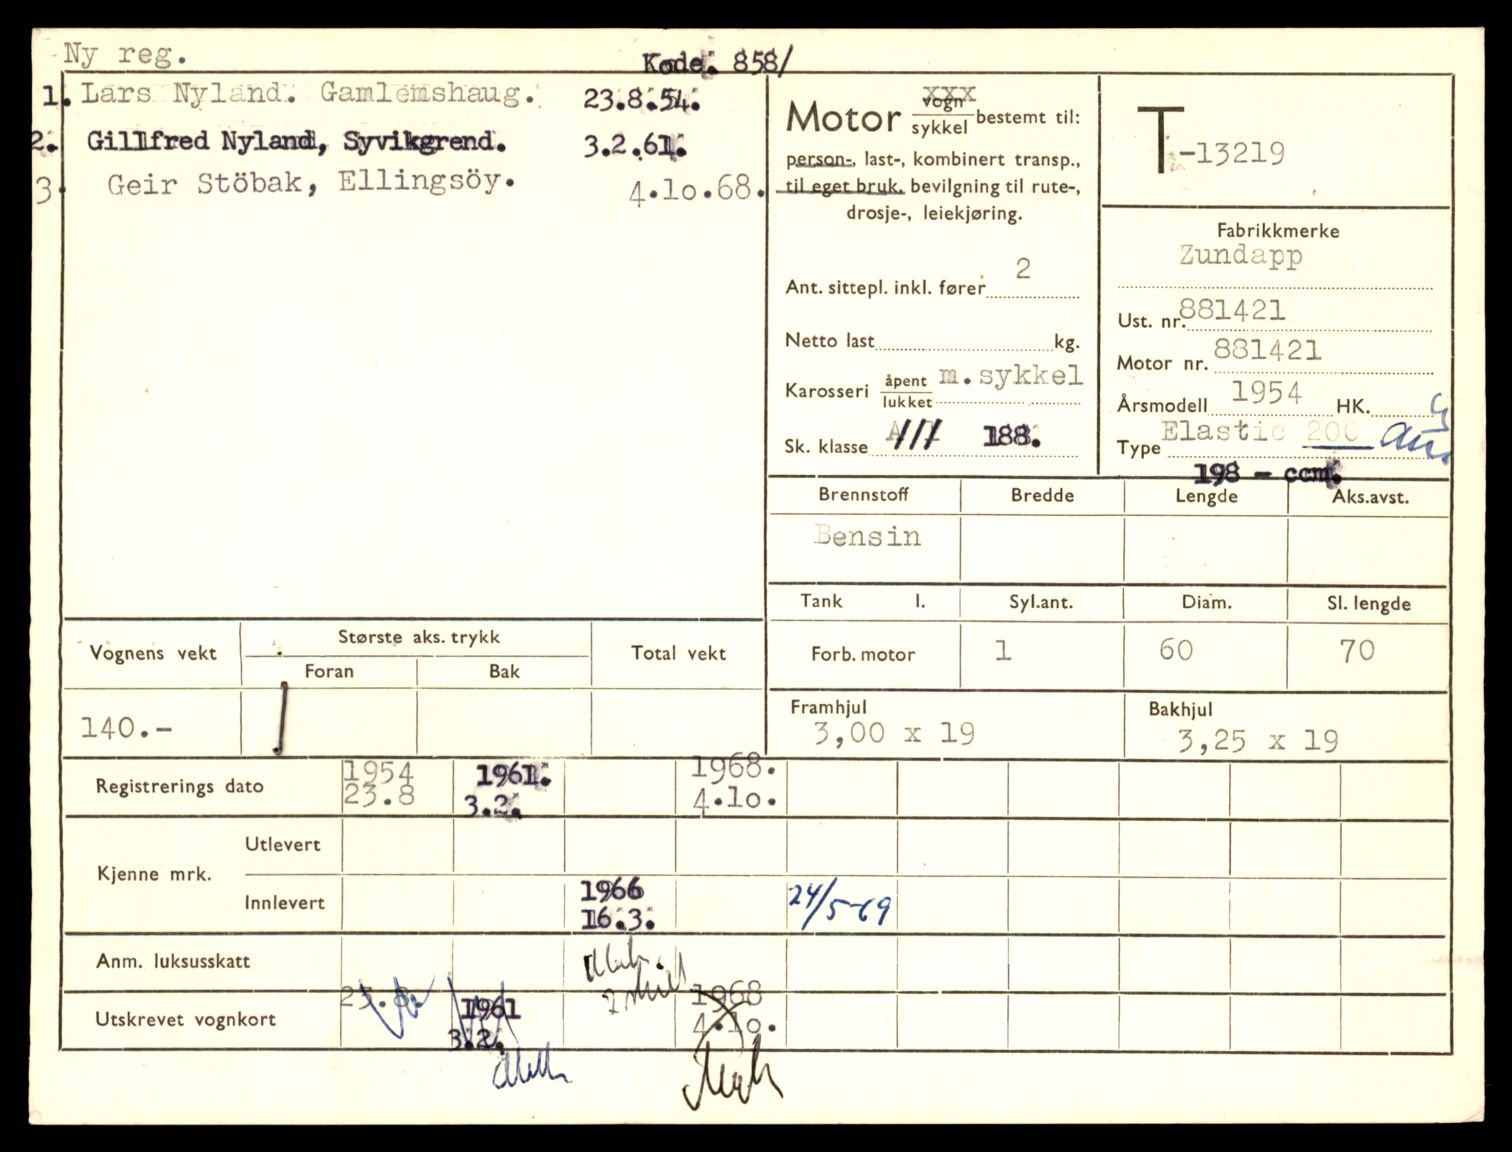 Ny reg.
Kode. 858/
1. Lars Nyland. Gamlemshaug. 23.8.54.
2. Gillfred Nyland, Syvikgrend. 3.2.61.
3. Geir Stöbak, Ellingsöy. 4.10.68.
xxx
Motor vogn/sykkel bestemt til:
person-, last-, kombinert transp.,
til eget bruk, bevilgning til rute-,
drosje-, leiekjøring.
Ant. sittepl. inkl. fører 2
Netto last kg.
Karosseri åpent/lukket m.sykkel
Sk. klasse 188.
T-13219
Fabrikkmerke
Zundapp
Ust. nr. 881421
Motor nr. 881421
Årsmodell 1954 HK.
Type Elastic 200
198 - ccm.
Brennstoff Bredde Lengde Aks.avst.
Bensin
Tank l. Syl.ant. Diam. Sl. lengde
Forb. motor 1 60 70
Framhjul Bakhjul
3,00 x 19 3,25 x 19
Vognens vekt Største aks. trykk Total vekt
Foran Bak
140.-
Registrerings dato 1954 1961. 1968.
23.8 3.2. 4.10.
Kjenne mrk. Utlevert
Innlevert 1966 24/5-69
16.3.
Anm. luksusskatt
2 skilt
Utskrevet vognkort 23.8. 1961 1968
3.2. 4.10.